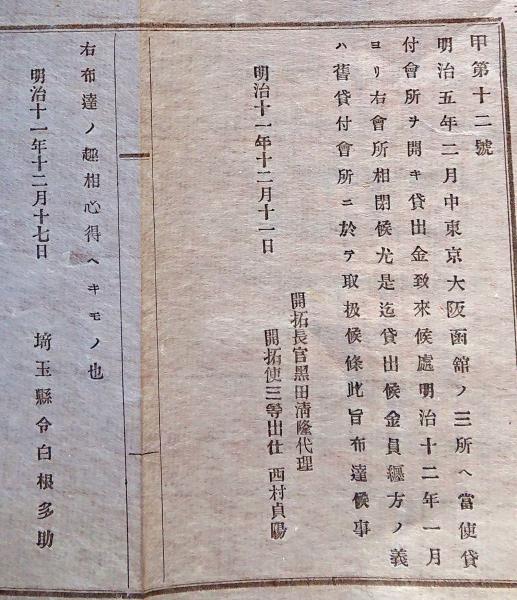 甲第十二號
明治五年二月中東京大阪函舘ノ三所ヘ當使貸
付會所ヲ開キ貸出金致來候處明治十二年一月
ヨリ右會所相閉候尤是迄貸出候金員纒方ノ義
ハ舊貸付會所ニ於テ取扱候條此旨布達候事
明治十一年十二月十一日
開拓長官黑田淸隆代理
開拓使三等出仕 西村貞陽
右布達ノ趣相心得ヘキモノ也
明治十一年十二月十七日
埼玉縣令白根多助